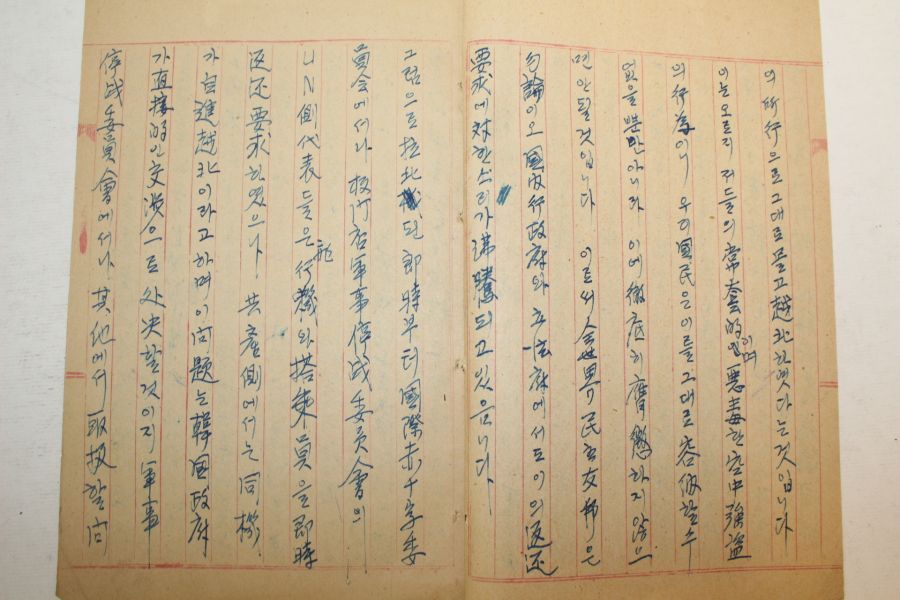 의 所行으로 그대로 몰고 越北하였다는것입니다
이는 오로지 저들의 常套的인 이며 惡毒한 空中強盜
의 行為이니 우리 國民은 이를 그대로 容恕할수
없을뿐만아니라 이에 徹底히 膺懲하지 않으
면 안될것입니다 이로써 全世界 民主友邦은
勿論이요 國內行政府와 立法府에서도 이의 返還
要求에 対한 소리가 沸騰되고 있읍니다
그럼으로 拉北 된 即時부터 國際赤十字委
員会에서나 板门店軍事停战委员會의
UN側代表들은 行 와 搭乘員을 即時
返还要求하였으나 共産側에서는 同機
가 自進越北이라고 하며 이 问題는 韓國政府
가 直接的인 交渉으로 处决할것이지 軍事
停战委員會에서나 其他에서 取扱할 问